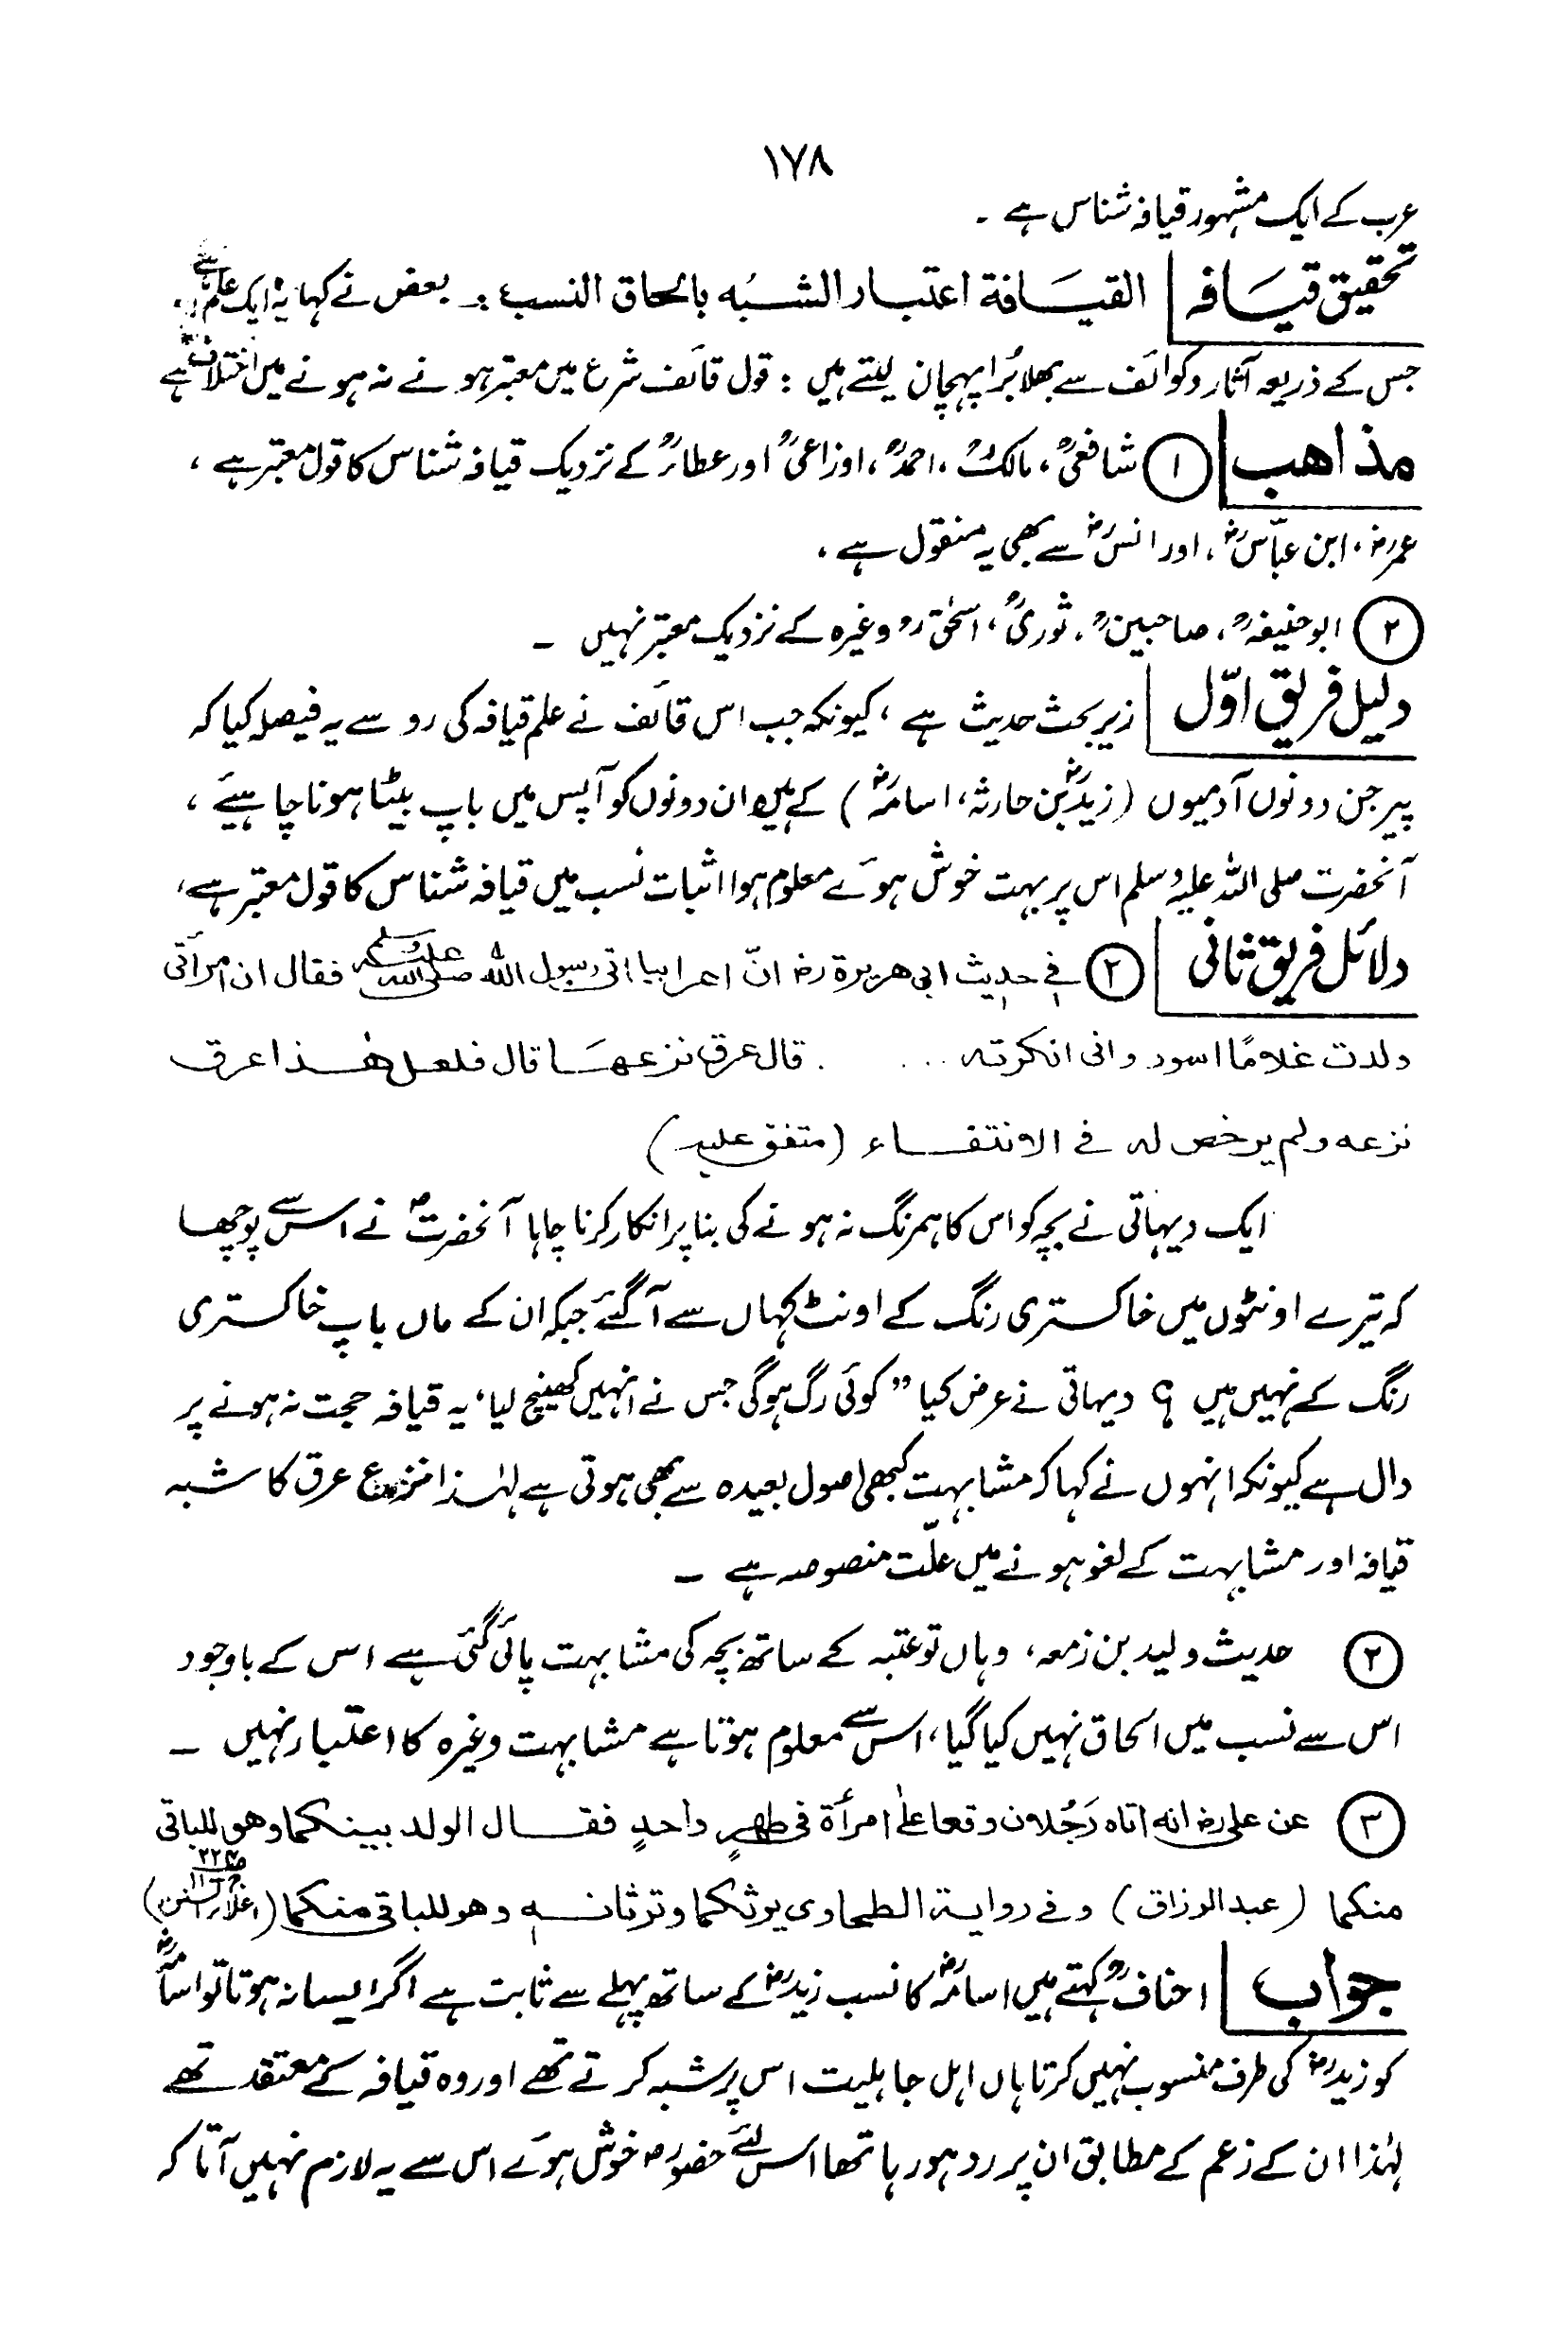 ١٧٨
عرب کے ایک مشہور قیافہ شناس ہے ۔
تحقیق قیَافہ القیَافة اعتبار الشبُه بالحاق النسب ؛ بعض نے کہا یہ ایک علم ہے
جس کے ذریعہ آثار و کوائف سے بھلا بُرا پہچان لیتے ہیں : قول قائف شرع میں معتبر ہونے نہ ہونے میں اختلاف ہے
مذاهب ① شافعیؒ، مالکؒ، احمدؒ، اوزاعیؒ اور عطاءؒ کے نزدیک قیافہ شناس کا قول معتبر ہے ،
عمرؓ، ابن عبّاسؓ، اور انسؓ سے بھی یہ منقول ہے ،
② ابو حنیفہؒ، صاحبینؒ، ثوریؒ، اسحٰقؒ وغیرہ کے نزدیک معتبر نہیں ۔
دلیل فریق اوّل زیر بحث حدیث ہے ، کیونکہ جب اس قائف نے علم قیافہ کی رو سے یہ فیصلہ کیا کہ
پیر جن دونوں آدمیوں (زیدؓ بن حارثہ، اسامہؓ) کے ہیں ان دونوں کو آپس میں باپ بیٹا ہونا چاہیئے ،
آنحضرت صلی اللہ علیہ وسلم اس پر بہت خوش ہوئے معلوم ہوا اثبات نسب میں قیافہ شناس کا قول معتبر ہے ،
دلائل فریق ثانی ② فی حدیث ابی هریرة رض انّ اعرابیا اتی رسول الله صلی اللہ علیہ وسلم فقال ان امرأتی
ولدت غلامًا اسود وانی انکرته ... . قال عرق نزعهَا قال فلعل هٰذا عرق
نزعه ولم یرخص له فی الانتفاء (متفق علیه)
ایک دیہاتی نے بچہ کو اس کا ہمرنگ نہ ہونے کی بنا پر انکار کرنا چاہا آنحضرتؐ نے اس سے پوچھا
کہ تیرے اونٹوں میں خاکستری رنگ کے اونٹ کہاں سے آگئے جبکہ ان کے ماں باپ خاکستری
رنگ کے نہیں ہیں ؟ دیہاتی نے عرض کیا ” کوئی رگ ہوگی جس نے انہیں کھینچ لیا، یہ قیافہ حجت نہ ہونے پر
دال ہے کیونکہ انہوں نے کہا کہ مشابہت کبھی اصول بعیدہ سے بھی ہوتی ہے لہٰذا نزع عرق کا شبہ
قیافہ اور مشابہت کے لغو ہونے میں علّت منصوصہ ہے ۔
② حدیث ولید بن زمعہ، وہاں تو عتبہ کے ساتھ بچہ کی مشابہت پائی گئی ہے اس کے باوجود
اس سے نسب میں الحاق نہیں کیا گیا ، اس سے معلوم ہوتا ہے مشابہت وغیرہ کا اعتبار نہیں ۔
③ عن علی رض انه اتاه رَجُلان وقعا علی امرأة فی طهرٍ واحدٍ فقال الولد بینکما وهو للباقی
منکما (عبد الرزاق) وفی روایة الطحاوی یرثکما وترثانه وهو للباقی منکما (اعلاء السنن
جواب احنافؒ کہتے ہیں اسامہؓ کا نسب زیدؓ کے ساتھ پہلے سے ثابت ہے اگر ایسا نہ ہوتا تو اسامہؓ
کو زیدؓ کی طرف منسوب نہیں کرتا ہاں اہل جاہلیت اس پر شبہ کرتے تھے اور وہ قیافہ کے معتقد تھے
لہٰذا ان کے زعم کے مطابق ان پر رد ہو رہا تھا اس لئے حضورؐ خوش ہوئے اس سے یہ لازم نہیں آتا کہ